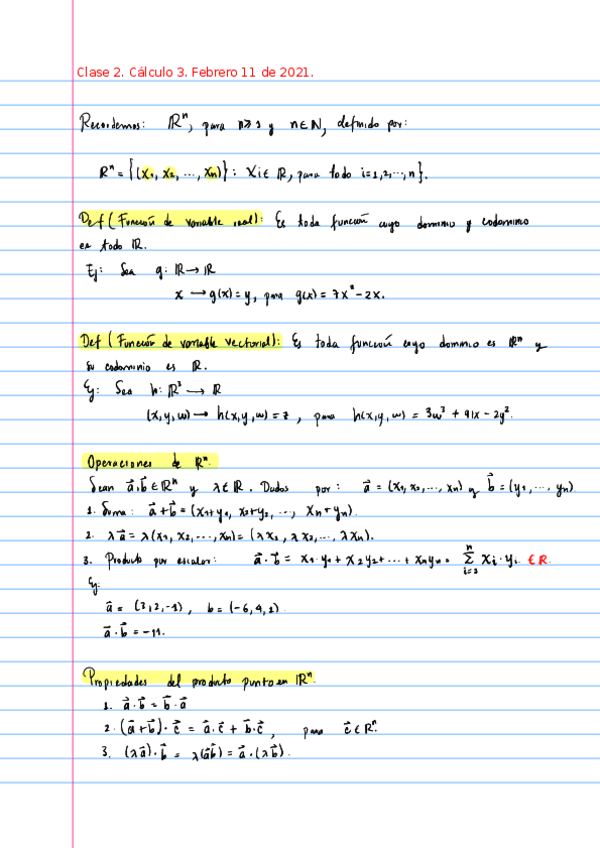 Clase 2. Cálculo 3. Febrero 11 de 2021.
Recordemos: ℝⁿ, para n≥1 y n∈ℕ, definido por:
ℝⁿ = {(x₁, x₂, ..., xₙ)} : xᵢ∈ ℝ, para todo i=1,2,...,n}.
Def (Función de variable real): Es toda función cuyo dominio y codominio
es todo ℝ.
Ej: Sea g: ℝ→ℝ
x → g(x) = y, para g(x) = 7x² - 2x.
Def (Función de variable vectorial): Es toda función cuyo dominio es ℝⁿ y
su codominio es ℝ.
Ej: Sea h: ℝ³ → ℝ
(x,y,w) → h(x,y,w) = z, para h(x,y,w) = 3w³ + 91x - 2y².
Operaciones de ℝⁿ.
Sean a⃗,b⃗ ∈ ℝⁿ y λ∈ℝ. Dados por: a⃗ = (x₁, x₂, ..., xₙ) y b⃗ = (y₁, ..., yₙ)
1. Suma: a⃗+b⃗ = (x₁+y₁, x₂+y₂, ..., xₙ+yₙ).
2. λa⃗ = λ(x₁, x₂, ..., xₙ) = (λx₁, λx₂, ..., λxₙ).
3. Producto por escalar: a⃗·b⃗ = x₁·y₁ + x₂y₂ + ... + xₙyₙ = Σⁿᵢ₌₁ xᵢ·yᵢ ∈ ℝ.
Ej:
a⃗ = (3,2,-1), b = (-6,4,1).
a⃗·b⃗ = -11.
Propiedades del producto punto en ℝⁿ.
1. a⃗·b⃗ = b⃗·a⃗
2. (a⃗+b⃗)·c⃗ = a⃗·c⃗ + b⃗·c⃗, para c⃗∈ℝⁿ.
3. (λa⃗)·b⃗ = λ(a⃗b⃗) = a⃗·(λb⃗).